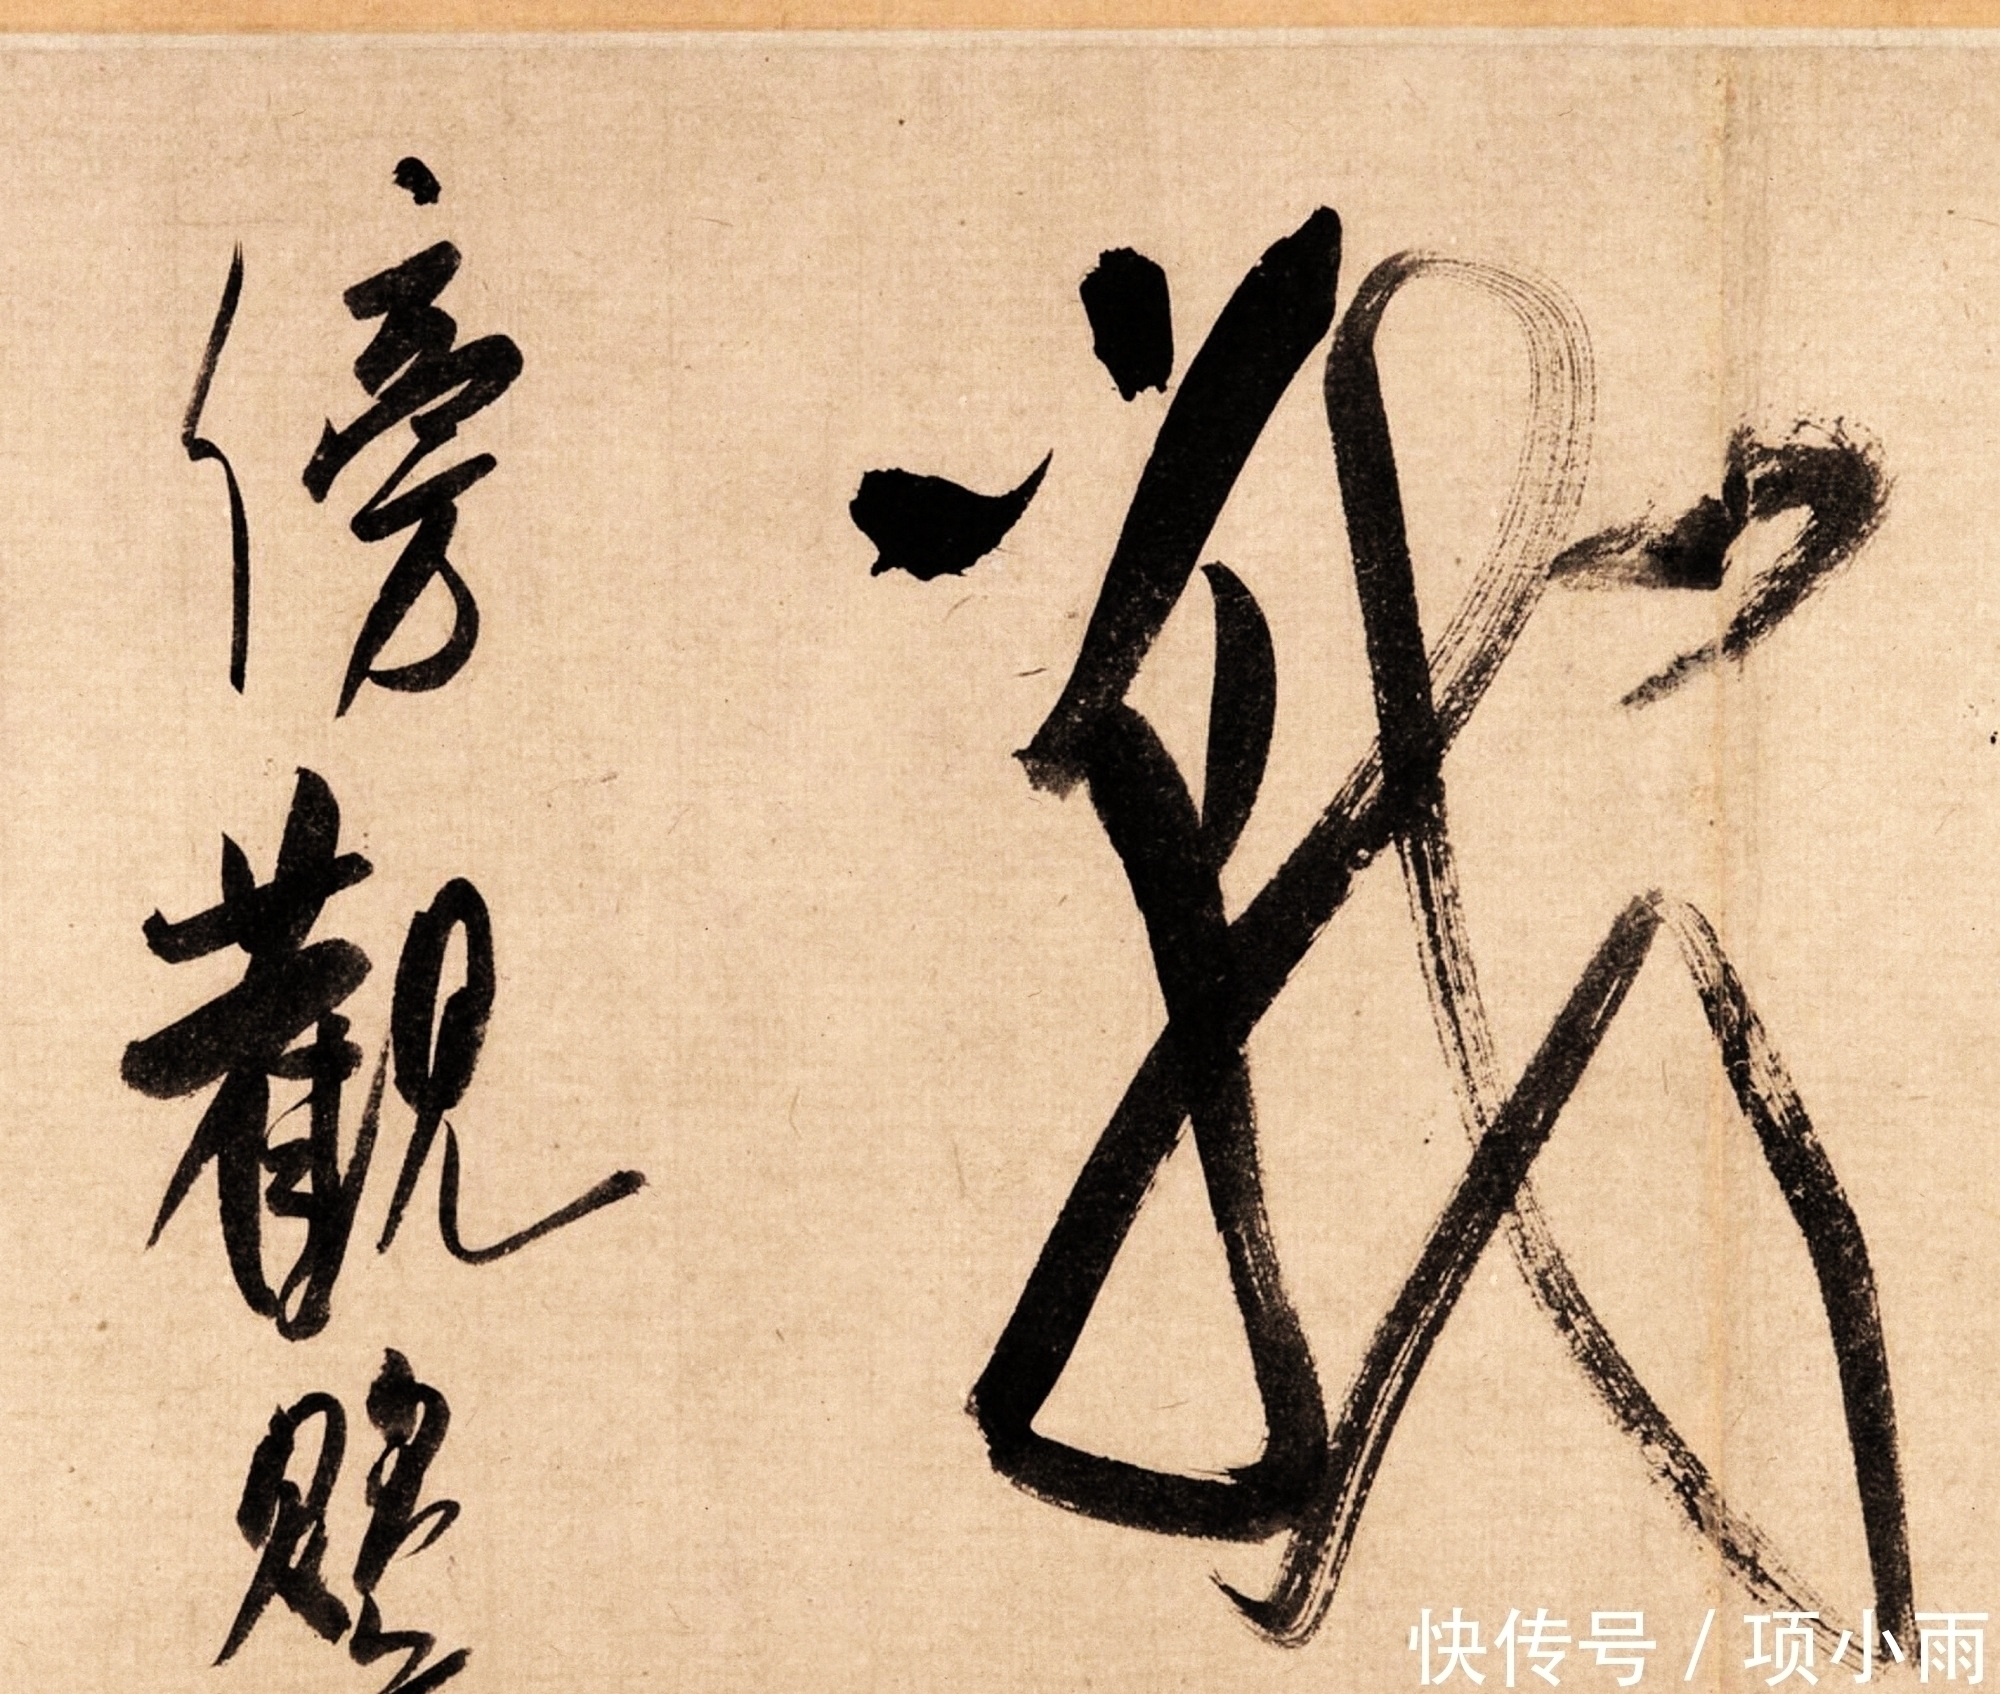 戰
傍觀
快传号 / 项小雨